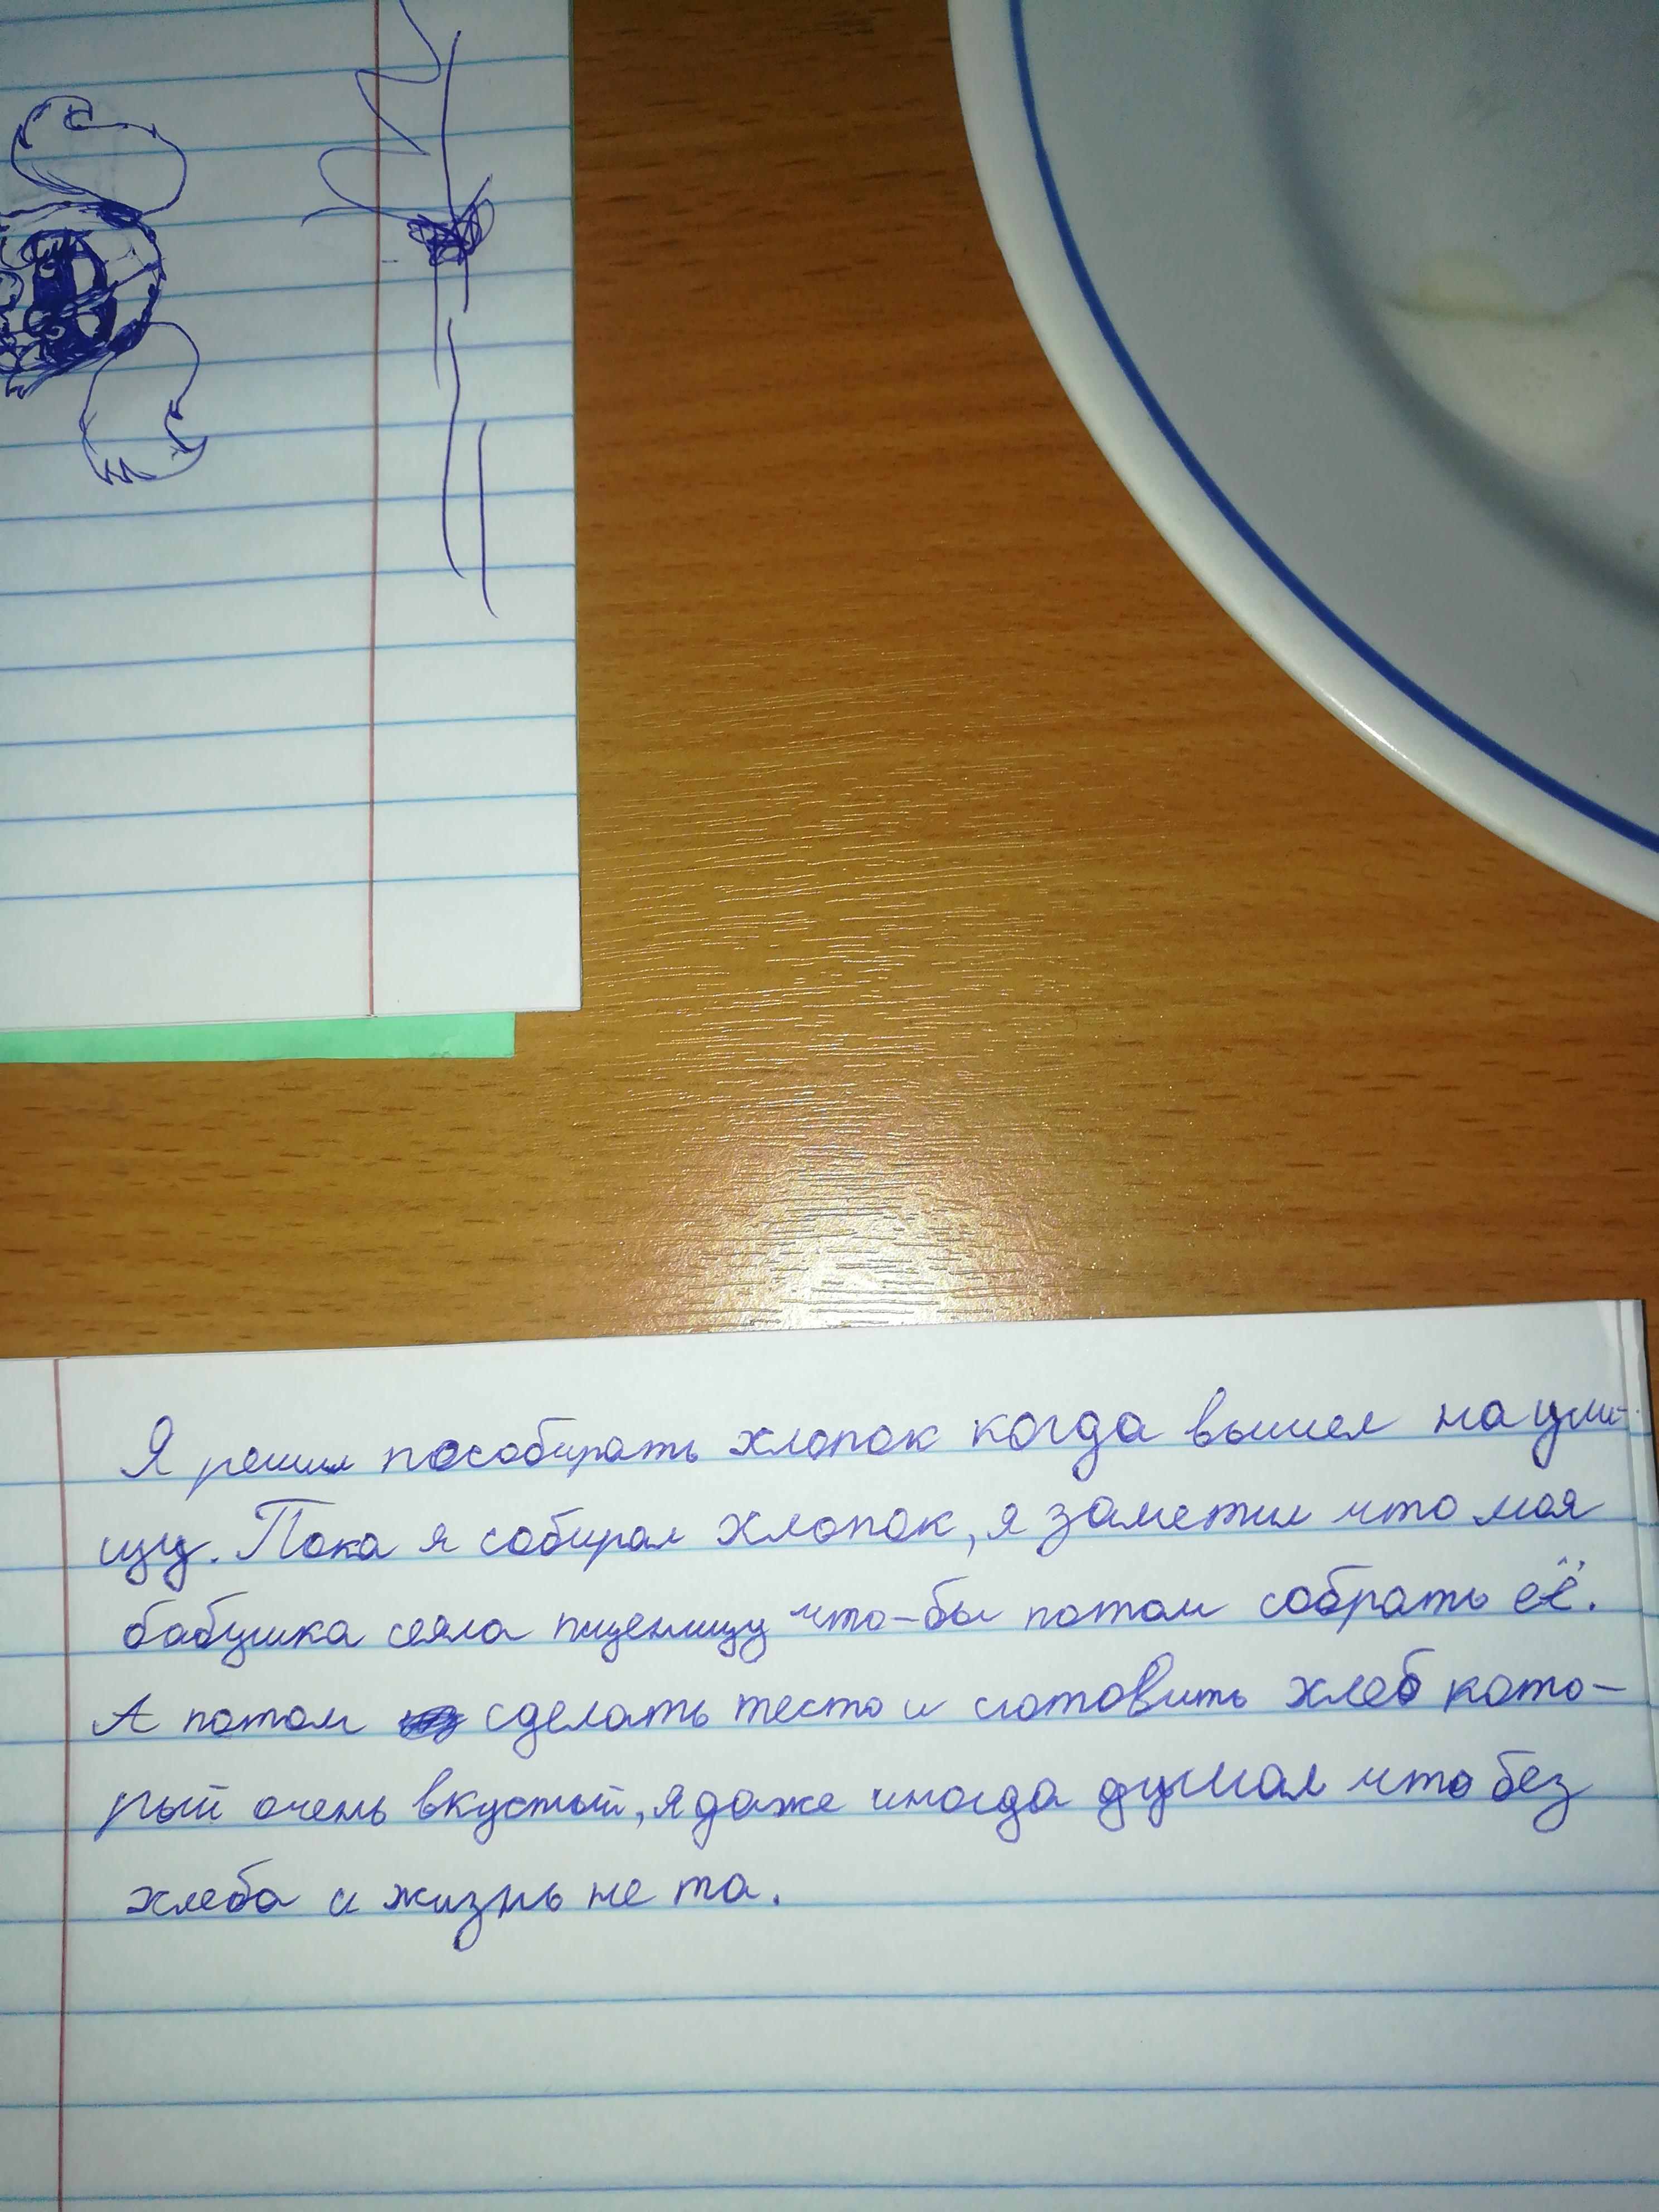 Я решил пособирать хлопок когда вышел на ули-
цу. Пока я собирал хлопок, я заметил что моя
бабушка сеяла пшеницу что-бы потом собрать её.
А потом сделать тесто и готовить хлеб кото-
рый очень вкустый, я даже иногда думал что без
хлеба и жизнь не та.